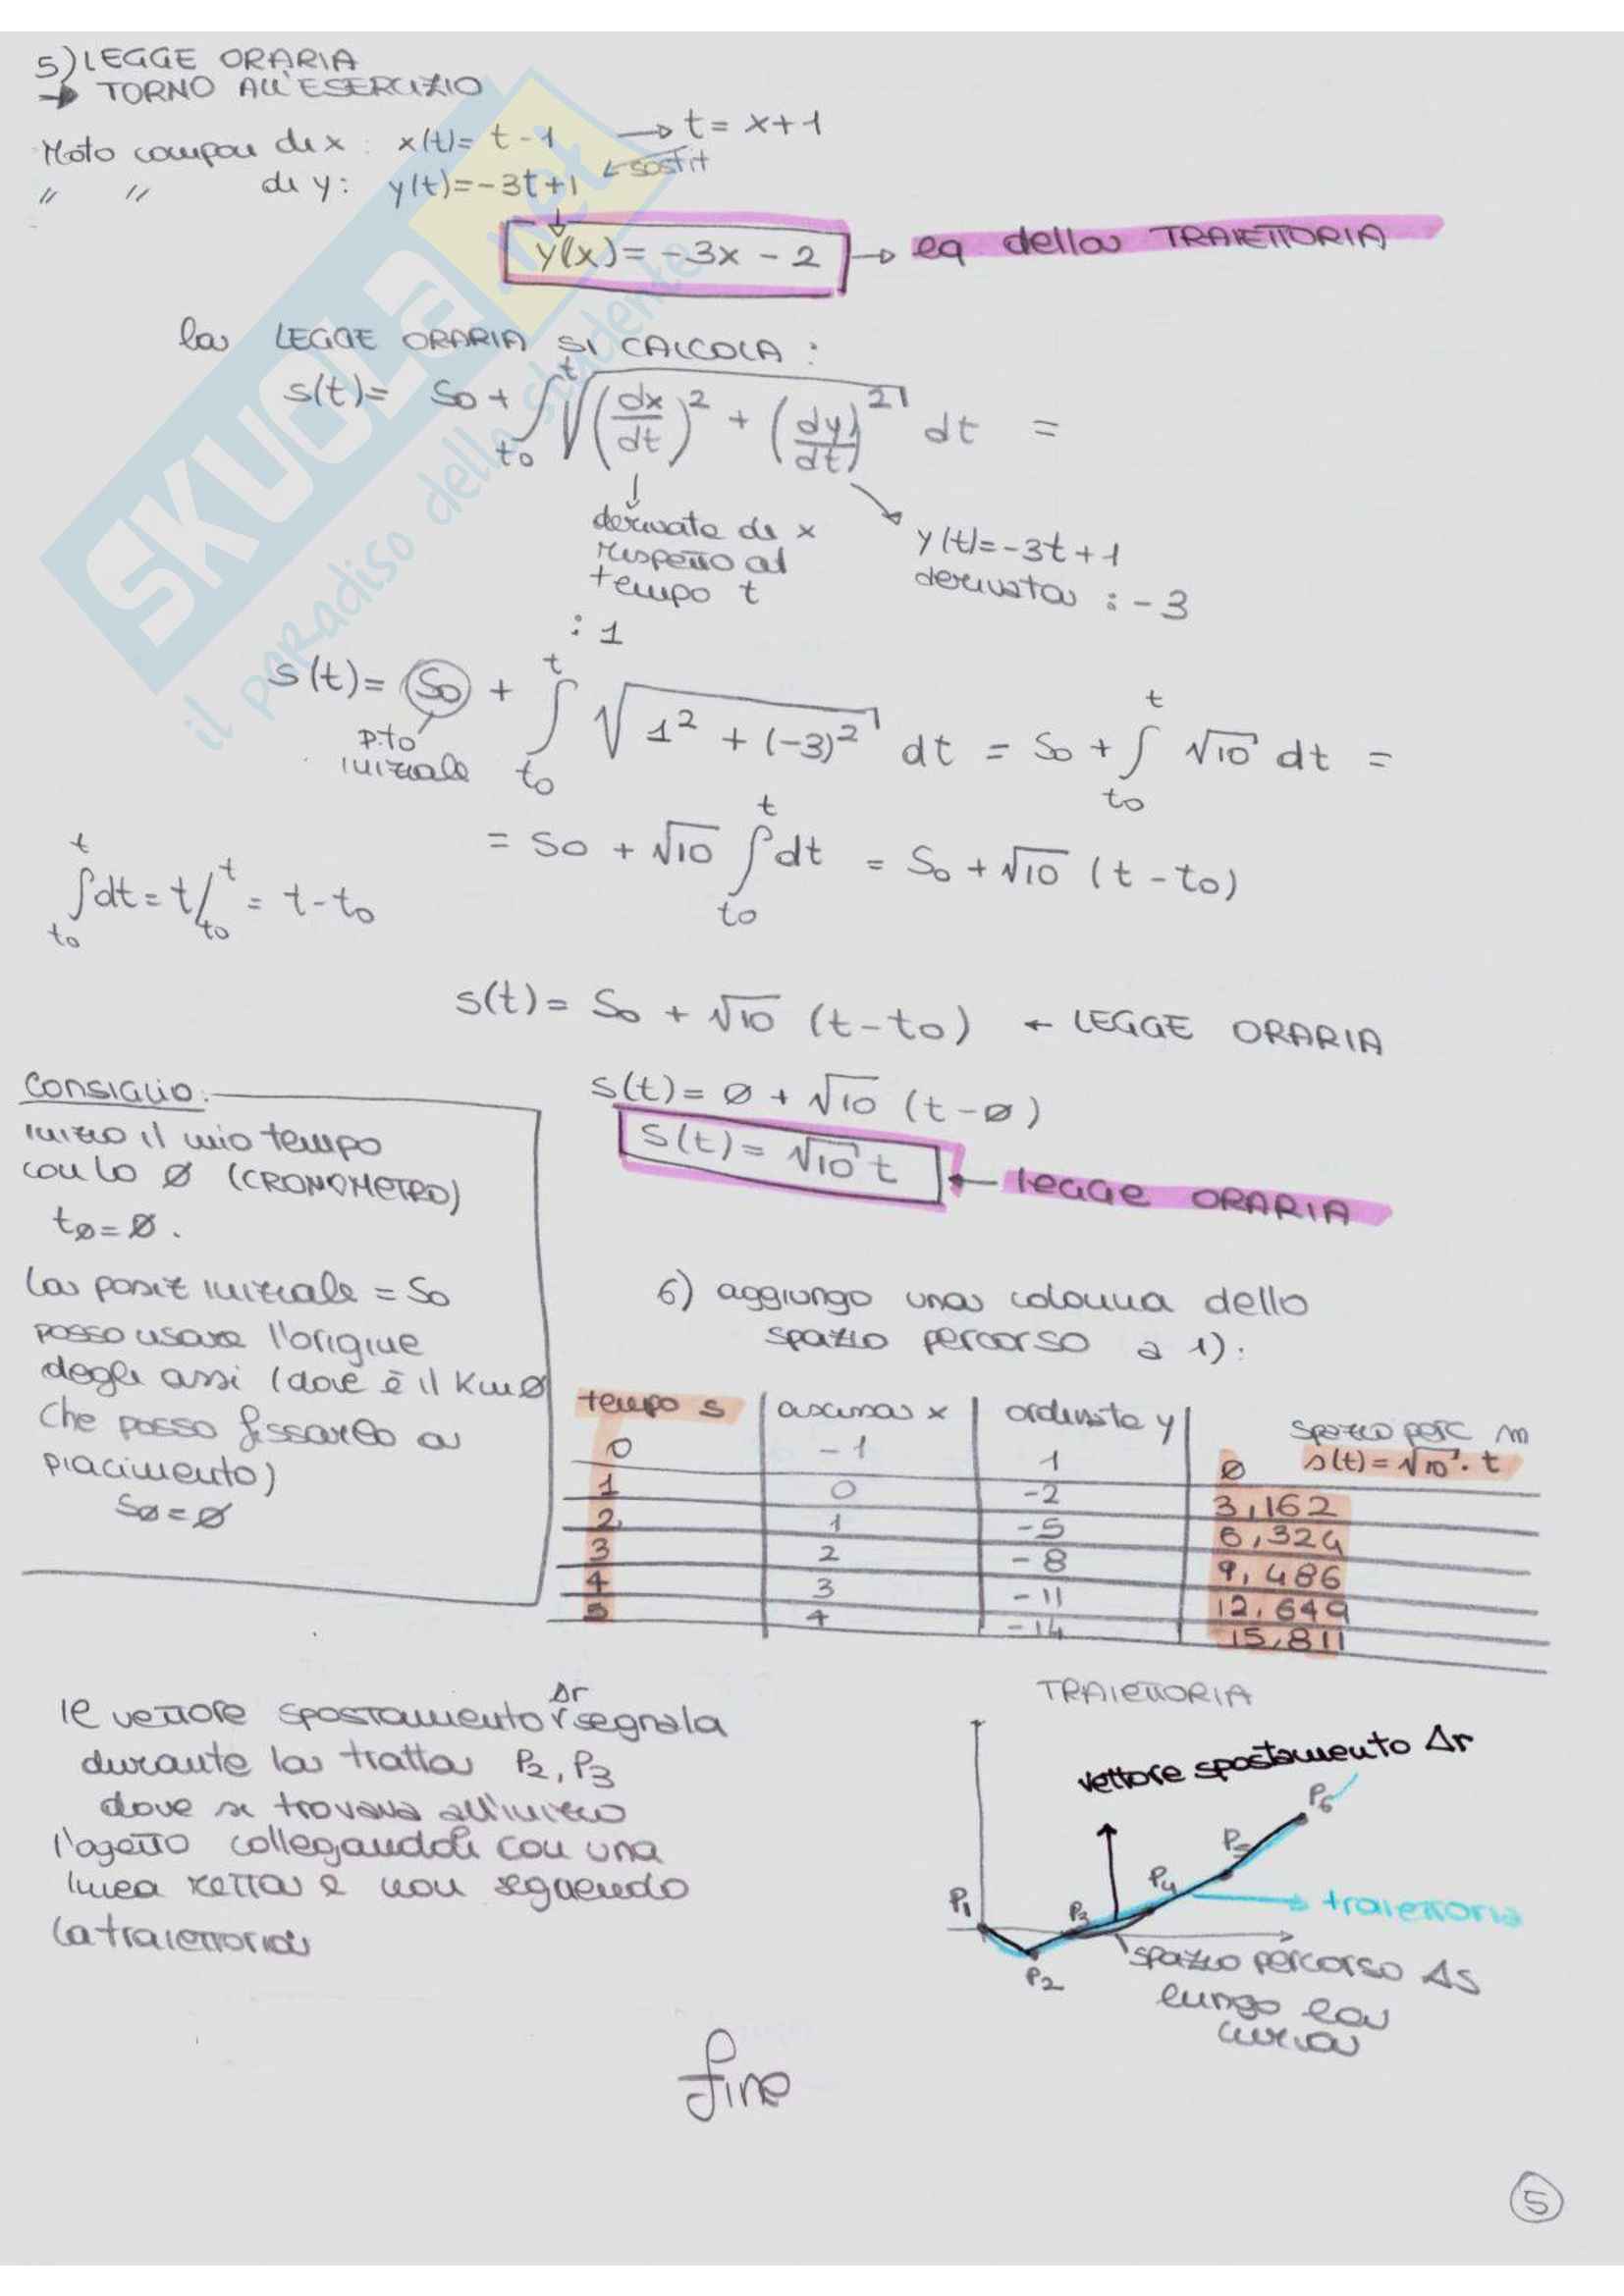 5) LEGGE ORARIA
→ TORNO ALL'ESERCIZIO
Moto compon di x : x(t)= t-1 → t= x+1
" " di y: y(t)=-3t+1 ← sostit
y(x)= -3x - 2 → eq della TRAIETTORIA
la LEGGE ORARIA SI CALCOLA :
s(t)= So + ∫_{to}^{t} √((dx/dt)² + (dy/dt)²) dt =
derivata di x
rispetto al
tempo t
: 1
y(t)=-3t+1
derivata : -3
s(t)= So + ∫_{to}^{t} √(1² + (-3)²) dt = So + ∫_{to}^{t} √10 dt =
p.to
iniziale
= So + √10 ∫_{to}^{t} dt = So + √10 (t-to)
∫_{to}^{t} dt = t/_{to}^{t} = t-to
s(t)= So + √10 (t-to) ← LEGGE ORARIA
s(t)= ø + √10 (t-ø)
s(t)= √10 t ← legge ORARIA
CONSIGLIO:
inizio il mio tempo
con lo ø (CRONOMETRO)
tø=ø.
la posiz iniziale = So
posso usare l'origine
degli assi (dove è il Km ø
che posso fissarlo a
piacimento)
sø=ø
6) aggiungo una colonna dello
spazio percorso a 1):
tempo s | ascissa x | ordinata y | spazio perc m
s(t)=√10 · t
0 | -1 | 1 | ø
1 | 0 | -2 | 3,162
2 | 1 | -5 | 6,324
3 | 2 | -8 | 9,486
4 | 3 | -11 | 12,649
5 | 4 | -14 | 15,811
il vettore spostamento Δr segnala
durante la tratta P2, P3
dove si trovava all'inizio
l'ogetto collegandoli con una
linea retta e non seguendo
la traiettoria
TRAIETTORIA
vettore spostamento Δr
P1
P2
P3
P4
P5
P6
traiettoria
spazio percorso Δs
lungo la
curva
fine
5
SKUOLA.net
il paradiso dello studente